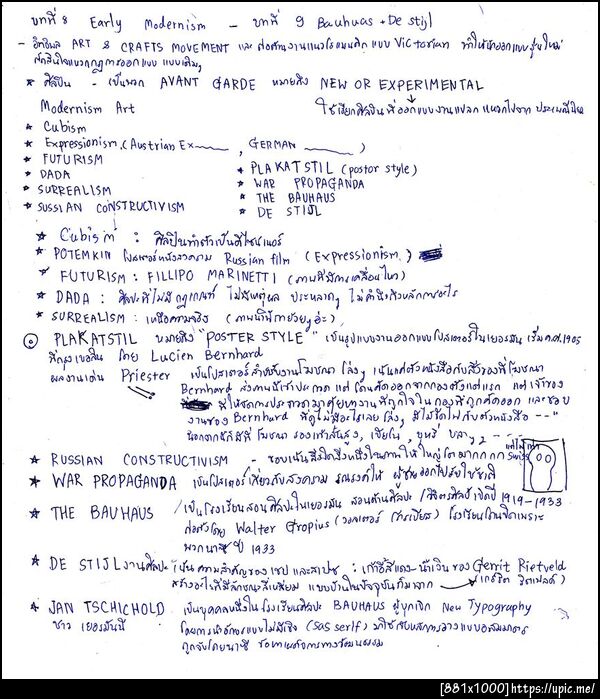 บทที่ 8 Early Modernism - บทที่ 9 Bauhuas + De stijl
- อิทธิพล ART & CRAFTS MOVEMENT และ ต่อต้านงานแนวโรแมนติก แบบ Victorian ทำให้นักออกแบบรุ่นใหม่
การออกแบบ แบบเดิมๆ
* ศิลปิน - เป็นพวก AVANT GARDE หมายถึง NEW OR EXPERIMENTAL
Modernism Art ใช้เรียกศิลปินที่ออกแบบงานแปลก แหวกไปจาก ประเพณีนิยม
* Cubism
* Expressionism, (Austrian Ex , GERMAN )
* FUTURISM
* DADA
* SURREALISM
* SUSSIAN CONSTRUCTIVISM
* PLAKATSTIL (postor style)
* WAR PROPAGANDA
* THE BAUHAUS
* DE STIJL
* Cubism : ศิลปินทำตัวเป็นดีไซน์เนอร์
* POTEMKIN โปสเตอร์หนังสงคราม Russian film (Expressionism)
* FUTURISM : FILLIPO MARINETTI (ภาพที่มีการเคลื่อนไหว)
* DADA : ศิลปะที่ไม่มีกฎเกณฑ์ ไม่มีเหตุผล ประหลาดๆ ไม่คำนึงถึงหลักการอะไร
* SURREALISM : เหนือความจริง
PLAKATSTIL หมายถึง "POSTER STYLE" เป็นรูปแบบงานออกแบบโปสเตอร์ในเยอรมัน เริ่ม ค.ศ. 1905
โดย Lucien Bernhard
ผลงานเด่น Priester เป็นโปสเตอร์สำหรับงานโฆษณา โล่งๆ เน้นแค่ตัวหนังสือกับสิ่งของที่โฆษณา
Bernhard ส่งงานนี้เข้าประกวด แต่ โดนคัดออกจากกองตั้งแต่แรก แต่ เจ้าของ
ที่ถูกคัดออก และชอบ
งานของ Bernhard ที่ดูไม่มีอะไรเลย โล่งๆ มีไม้ขีดไฟกับตัวหนังสือ --"
* RUSSIAN CONSTRUCTIVISM -
* WAR PROPAGANDA เป็นโปสเตอร์เกี่ยวกับสงคราม รณรงค์ให้ ผู้ชายออกไปรับใช้ชาติ
* THE BAUHAUS เป็นโรงเรียนสอนศิลปะในเยอรมัน สอนด้านศิลปะ / วิจิตรศิลป์ เปิดปี 1919-1933
ก่อตั้งโดย Walter Gropius (วอลเตอร์ โกรเปียส) โรงเรียนโดนปิดเพราะ
พวกนาซี ปี 1933
* DE STIJL งานศิลปะ เน้นความสำคัญของ เชป และสเปซ : เก้าอี้สีแดง-น้ำเงิน ของ Gerrit Rietveld
สร้างอะไรก็มีลักษณะสี่เหลี่ยม แบบบ้านในปัจจุบันก็มาจาก
* JAN TSCHICHOLD เป็นบุคคลหนึ่งในโรงเรียนศิลปะ BAUHAUS ผู้บุกเบิก New Typography
ชาว เยอรมันนี โดยการนำอักษรแบบไม่มีเชิง (sas serif) มาใช้
[881x1000] https://upic.me/